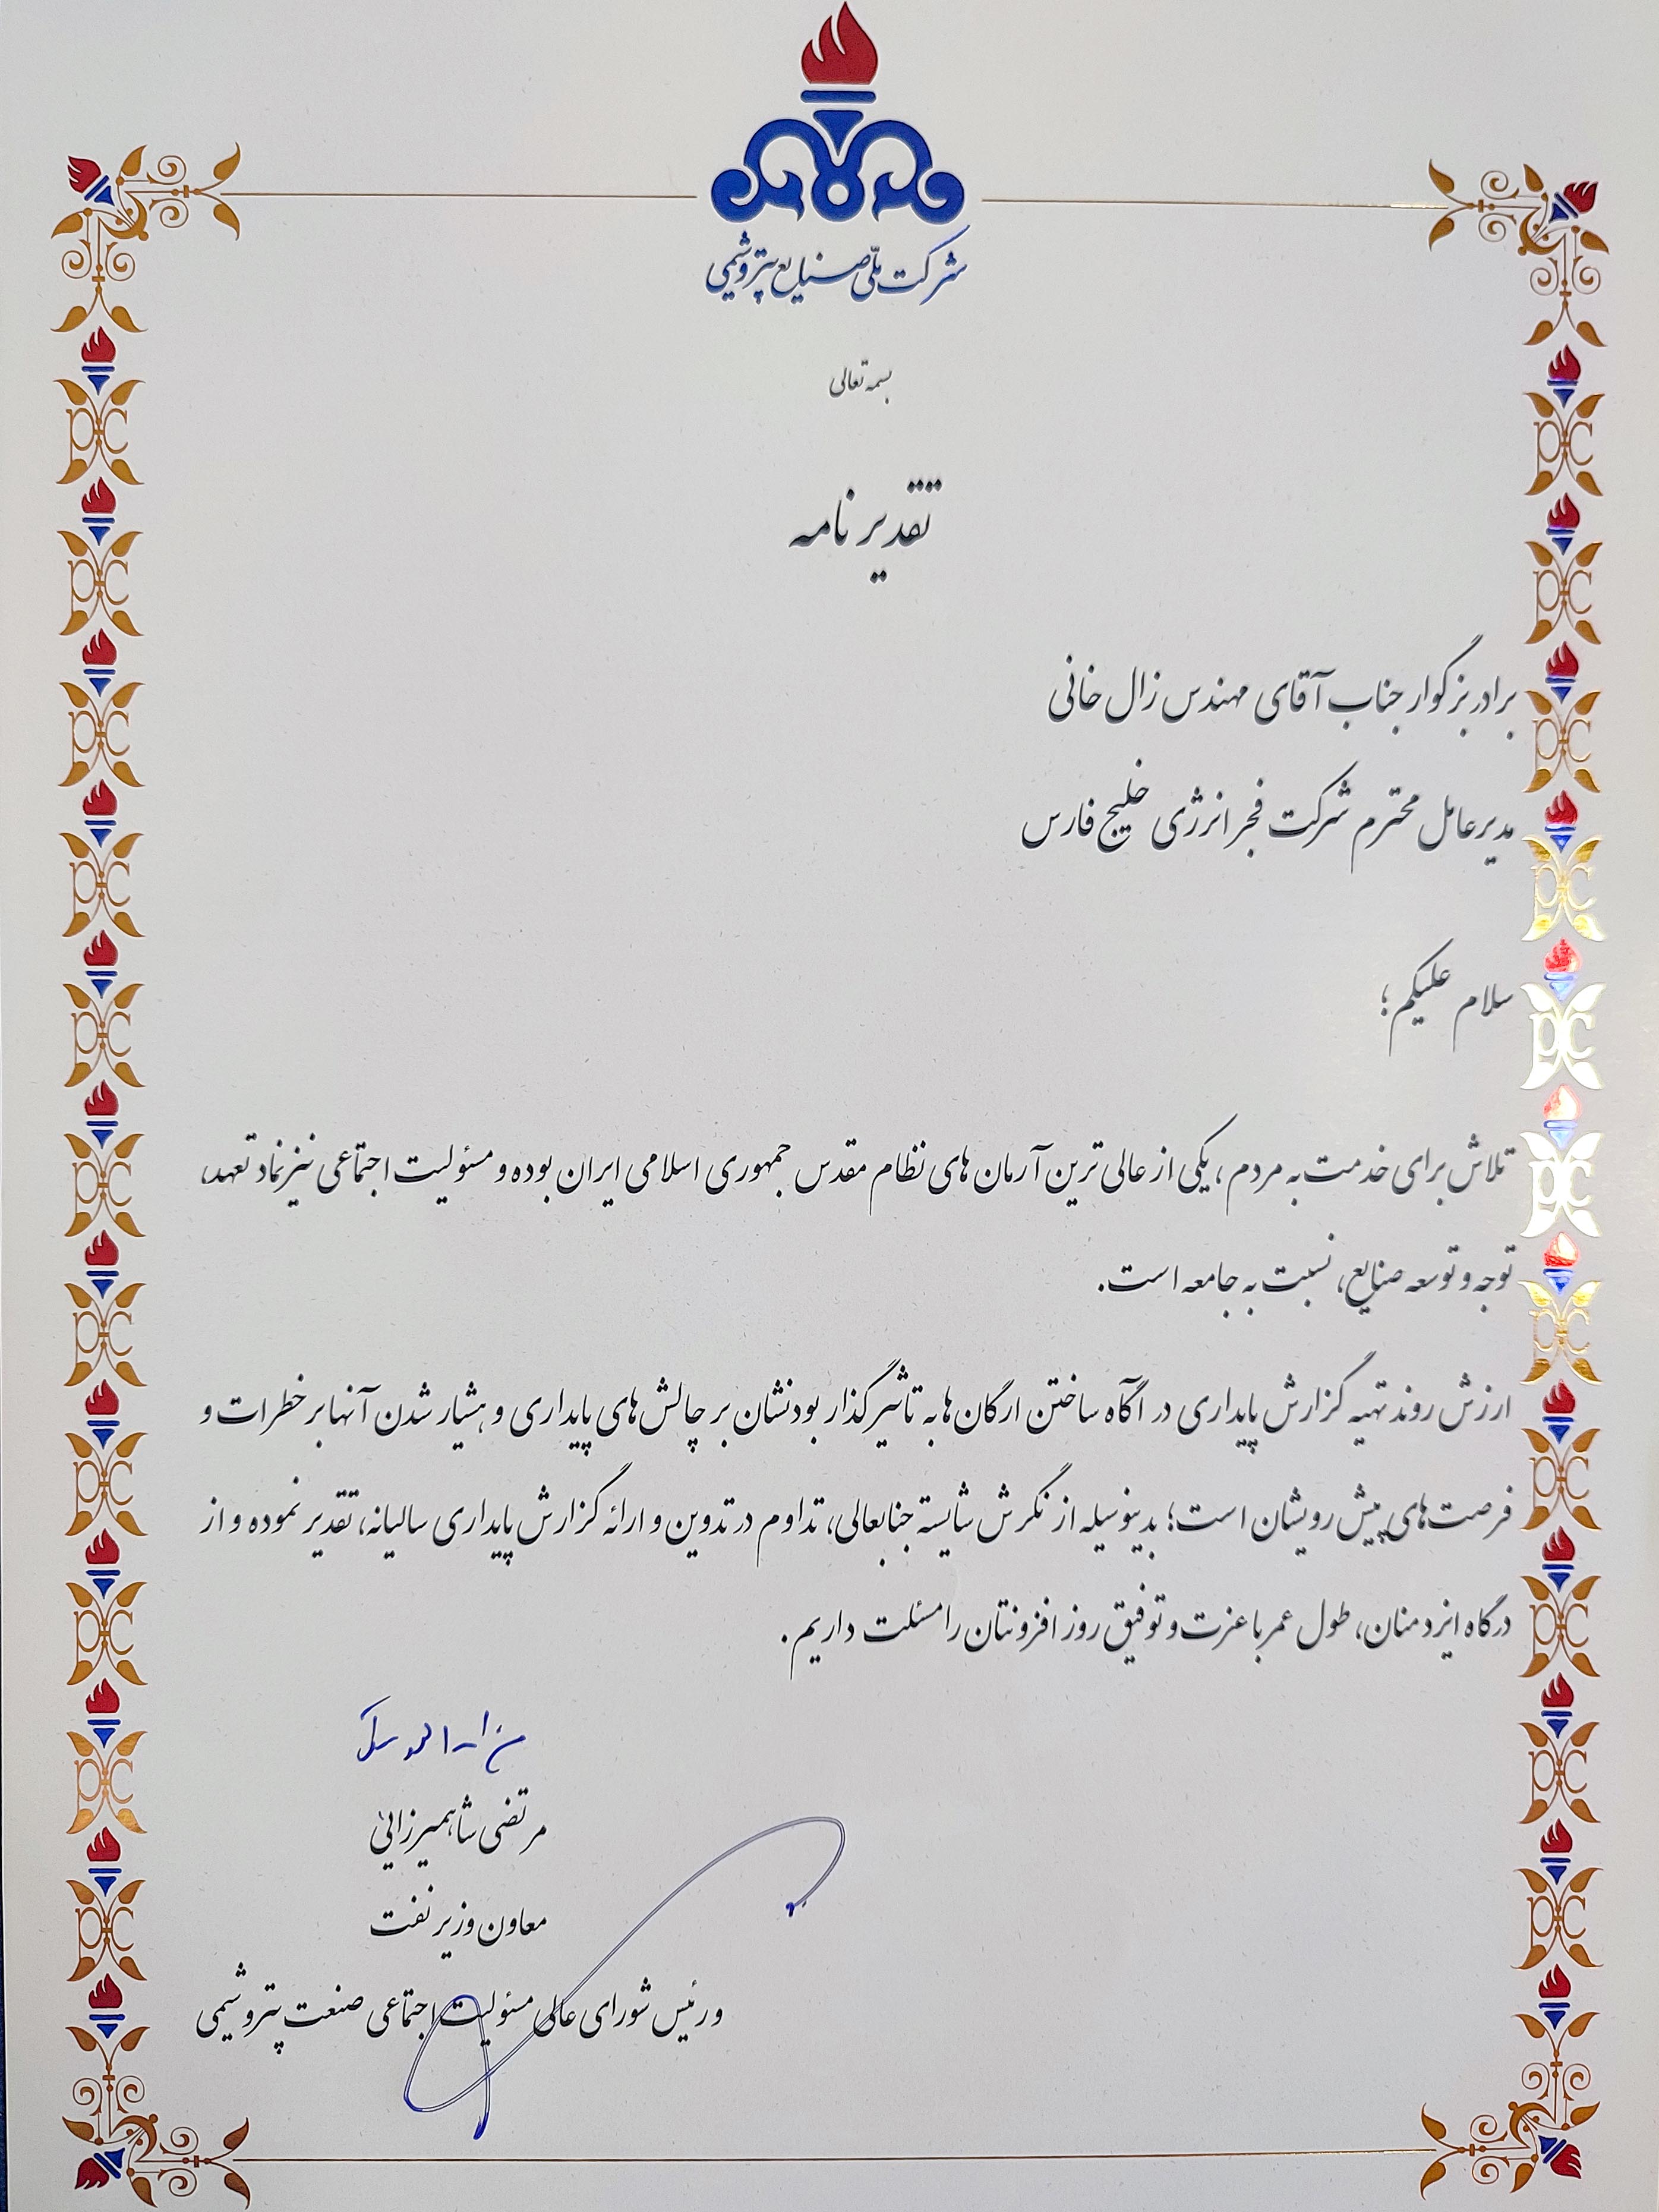 شرکت ملّی صنایع پتروشیمی
بسمه تعالی
تقدیر نامه
برادر بزرگوار جناب آقای مهندس زال خانی
مدیرعامل محترم شرکت فجر انرژی خلیج فارس
سلام علیکم؛
تلاش برای خدمت به مردم، یکی از عالی ترین آرمان های نظام مقدس جمهوری اسلامی ایران بوده و مسئولیت اجتماعی نیز نماد تعهد،
توجه و توسعه صنایع، نسبت به جامعه است.
ارزش روند تهیه گزارش پایداری در آگاه ساختن ارگان ها به تأثیرگذار بودنشان بر چالش های پایداری و هشیار شدن آنها بر خطرات و
فرصت های پیش رویشان است؛ بدینوسیله از نگرش شایسته جنابعالی، تداوم در تدوین و ارائه گزارش پایداری سالیانه، تقدیر نموده و از
درگاه ایزد منان، طول عمر با عزت و توفیق روز افزونتان را مسئلت داریم.
مرتضی شاهمیرزائی
معاون وزیر نفت
و رئیس شورای عالی مسئولیت اجتماعی صنعت پتروشیمی